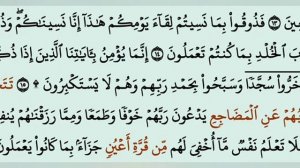 ١٣ فَذُوقُوا۟ بِمَا نَسِيتُمْ لِقَآءَ يَوْمِكُمْ هَٰذَآ إِنَّا نَسِينَٰكُمْ ۖ وَذُ
بَ ٱلْخُلْدِ بِمَا كُنتُمْ تَعْمَلُونَ ١٤ إِنَّمَا يُؤْمِنُ بِـَٔايَٰتِنَا ٱلَّذِينَ إِذَا ذُكِّ
خَرُّوا۟ سُجَّدًا وَسَبَّحُوا۟ بِحَمْدِ رَبِّهِمْ وَهُمْ لَا يَسْتَكْبِرُونَ ١٥ تَتَجَ
بُهُمْ عَنِ ٱلْمَضَاجِعِ يَدْعُونَ رَبَّهُمْ خَوْفًا وَطَمَعًا وَمِمَّا رَزَقْنَٰهُمْ يُنفِ
لَا تَعْلَمُ نَفْسٌ مَّآ أُخْفِىَ لَهُم مِّن قُرَّةِ أَعْيُنٍ جَزَآءًۢ بِمَا كَانُوا۟ يَعْمَلُونَ